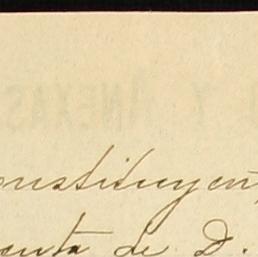 Y ANEXAS
onstituyen
enta de D.